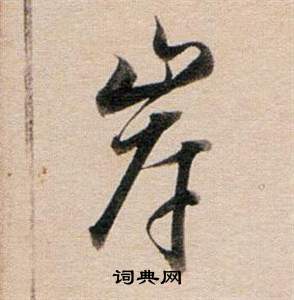 岸
词典网